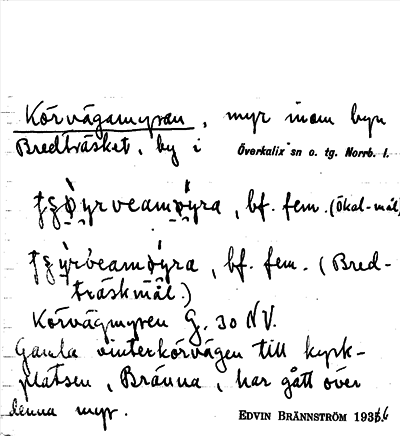 Körvägamyran, myr inom byn
Bredträsket, by i Överkalix sn o. tg. Norrb. l.
bf. fem. (Ökal-mål)
bf. fem. (Bred-
träskmål.)
Körvägmyren G. 30 NV.
Gamla vinterkörvägen till kyrk-
platsen, Brånna, har gått över
denna myr. EDVIN BRÄNNSTRÖM 1936